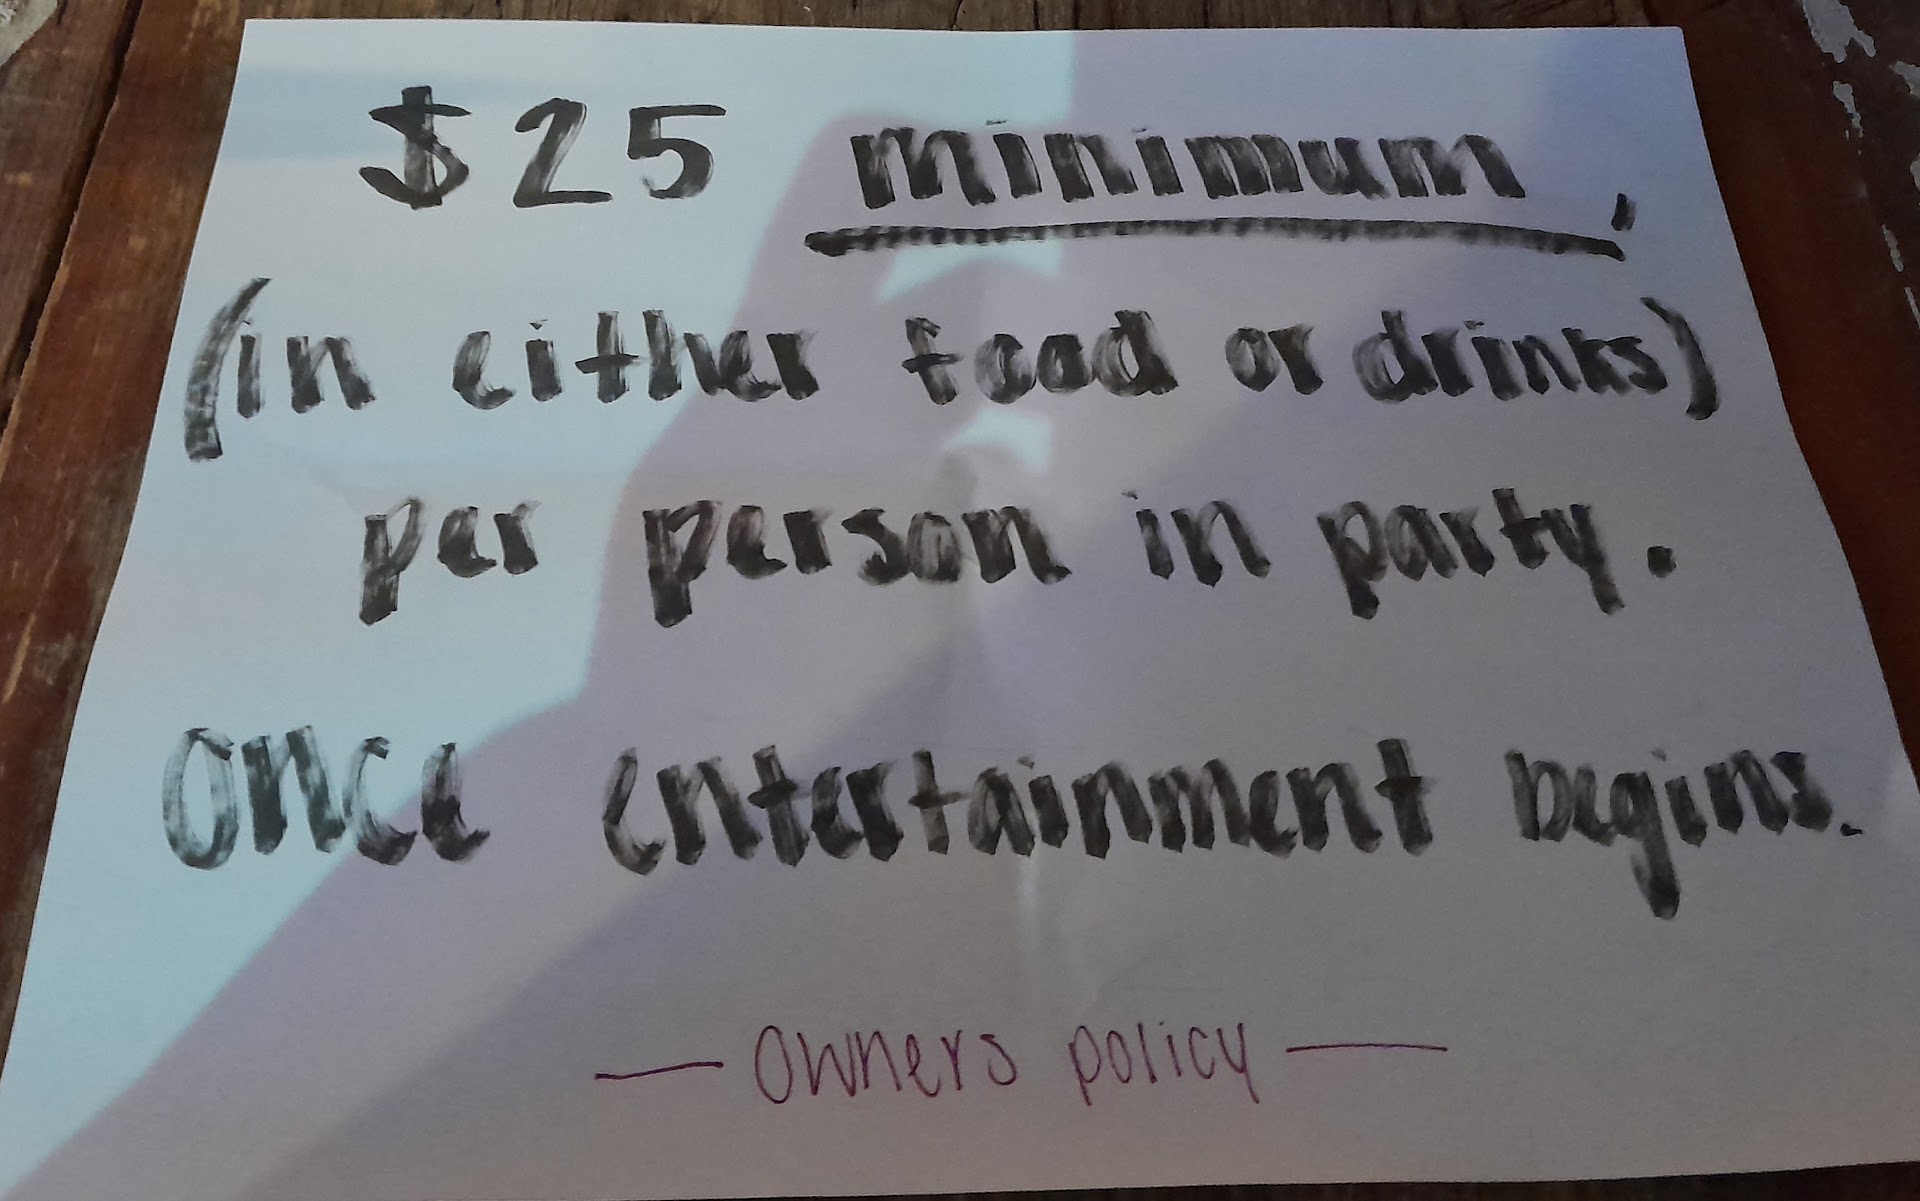 $25 minimum,
(in either food or drinks)
per person in party.
Once entertainment begins.
— Owners policy —